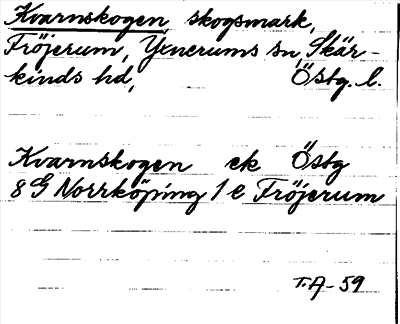 Kvarnskogen, skogsmark,
Fröjerum, Yxnerums sn, Skär-
kinds hd, Östg. l.
Kvarnskogen ek Östg
8 G Norrköping 1 e Fröjerum
T.A-59